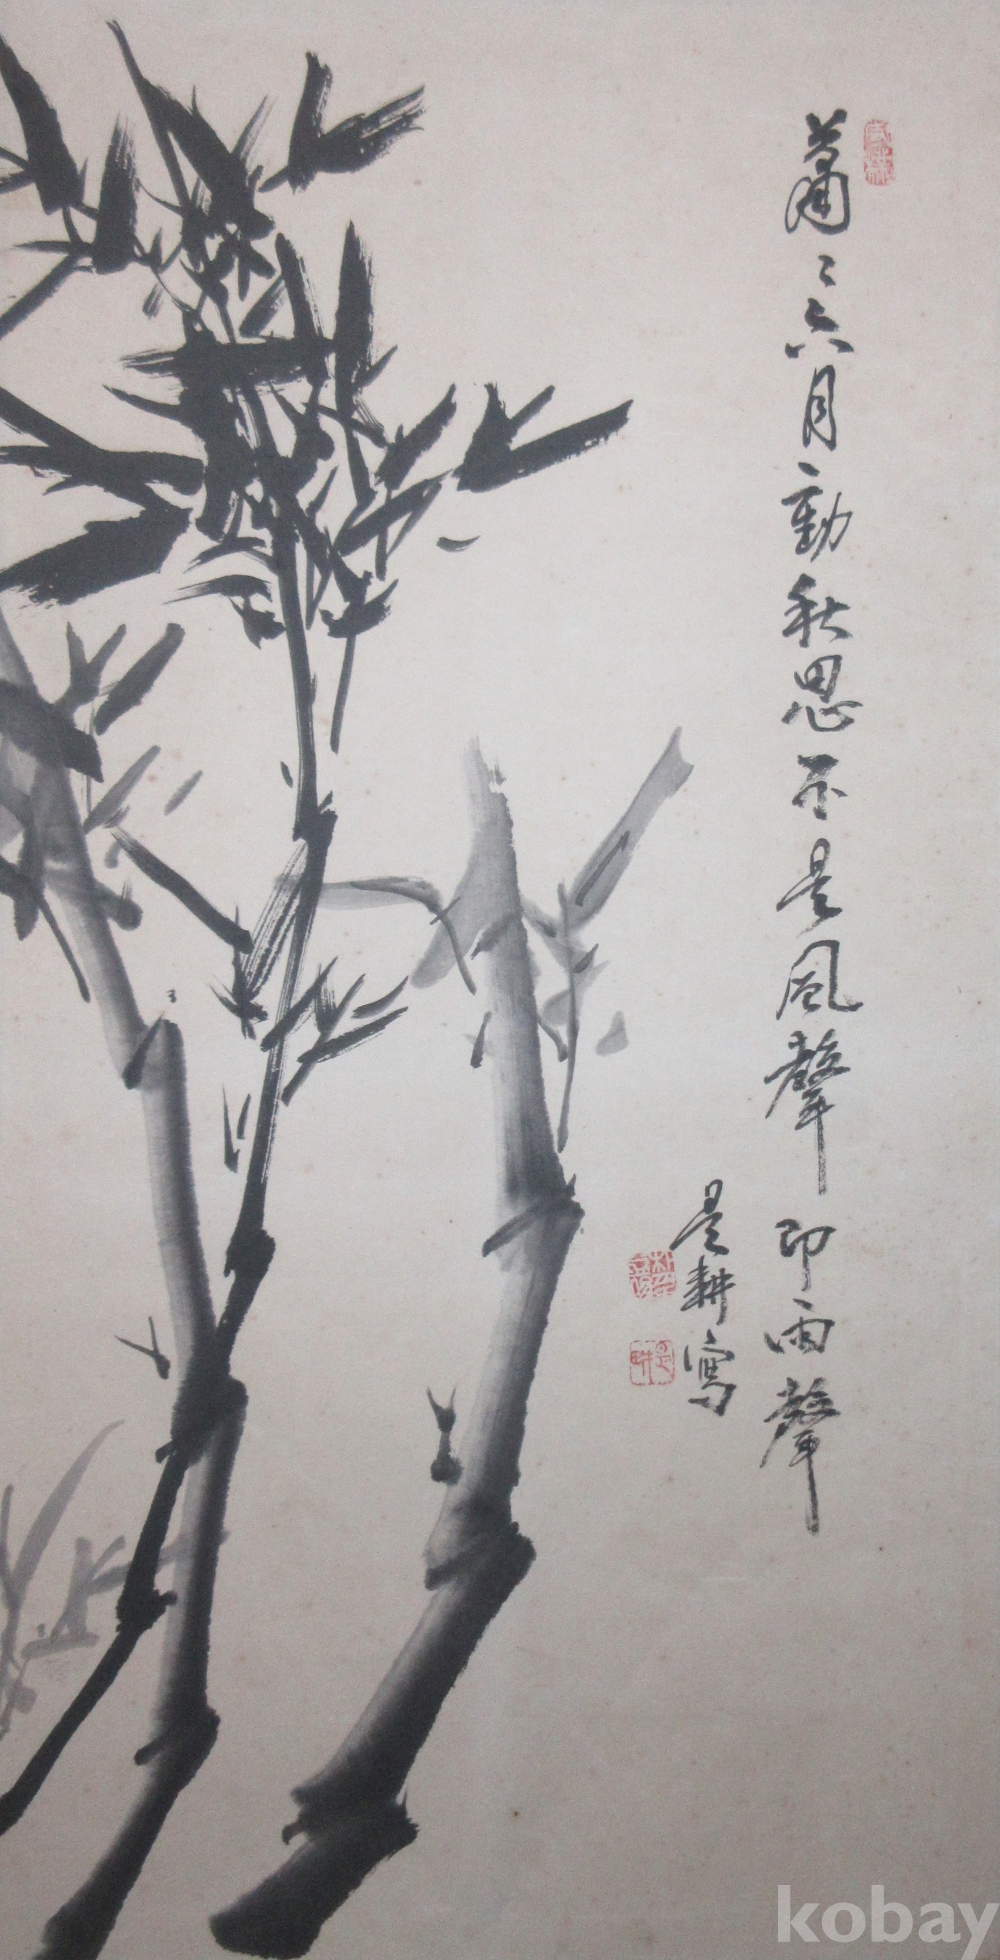 蕭〻六月動秋思不是風聲即雨聲
是耕寫
kobay